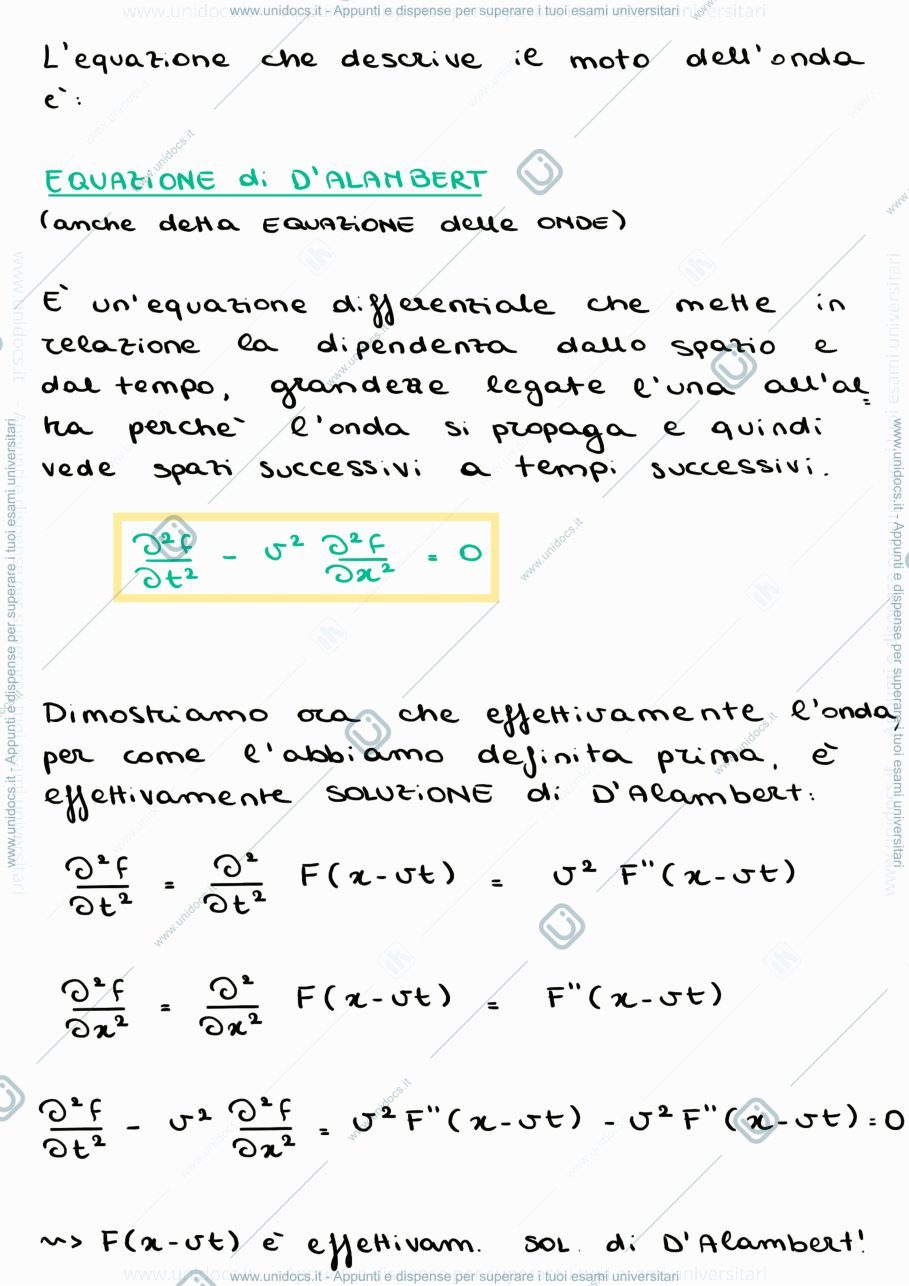 www.unidocs.it - Appunti e dispense per superare i tuoi esami universitari
L'equazione che descrive il moto dell'onda
è:
EQUAZIONE di D'ALAMBERT
(anche detta EQUAZIONE delle ONDE)
È un'equazione differenziale che mette in
relazione la dipendenza dallo spazio e
dal tempo, grandezze legate l'una all'al=
tra perchè l'onda si propaga e quindi
vede spazi successivi a tempi successivi.
∂²f/∂t² - v² ∂²f/∂x² = 0
Dimostriamo ora che effettivamente l'onda,
per come l'abbiamo definita prima, è
effettivamente SOLUZIONE di D'Alambert:
∂²f/∂t² = ∂²/∂t² F(x-vt) = v² F"(x-vt)
∂²f/∂x² = ∂²/∂x² F(x-vt) = F"(x-vt)
∂²f/∂t² - v² ∂²f/∂x² = v² F"(x-vt) - v² F"(x-vt) = 0
~> F(x-vt) è effettivam. SOL. di D'Alambert!
www.unidocs.it - Appunti e dispense per superare i tuoi esami universitari
www.unidocs.it - Appunti e dispense per superare i tuoi esami universitari
www.unidocs.it - Appunti e dispense per superare i tuoi esami universitari